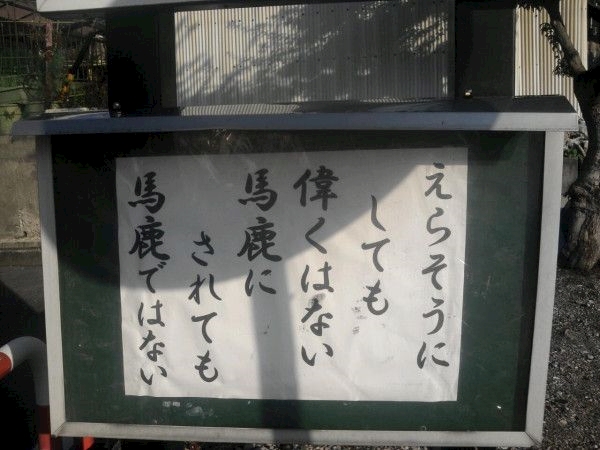 えらそうに
しても
偉くはない
馬鹿に
されても
馬鹿ではない